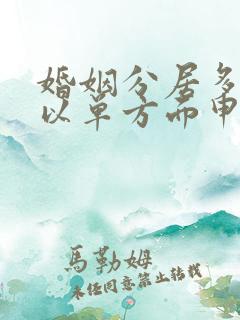 婚姻分居多
以单方面申
馬勒姆
未经同意禁止转载